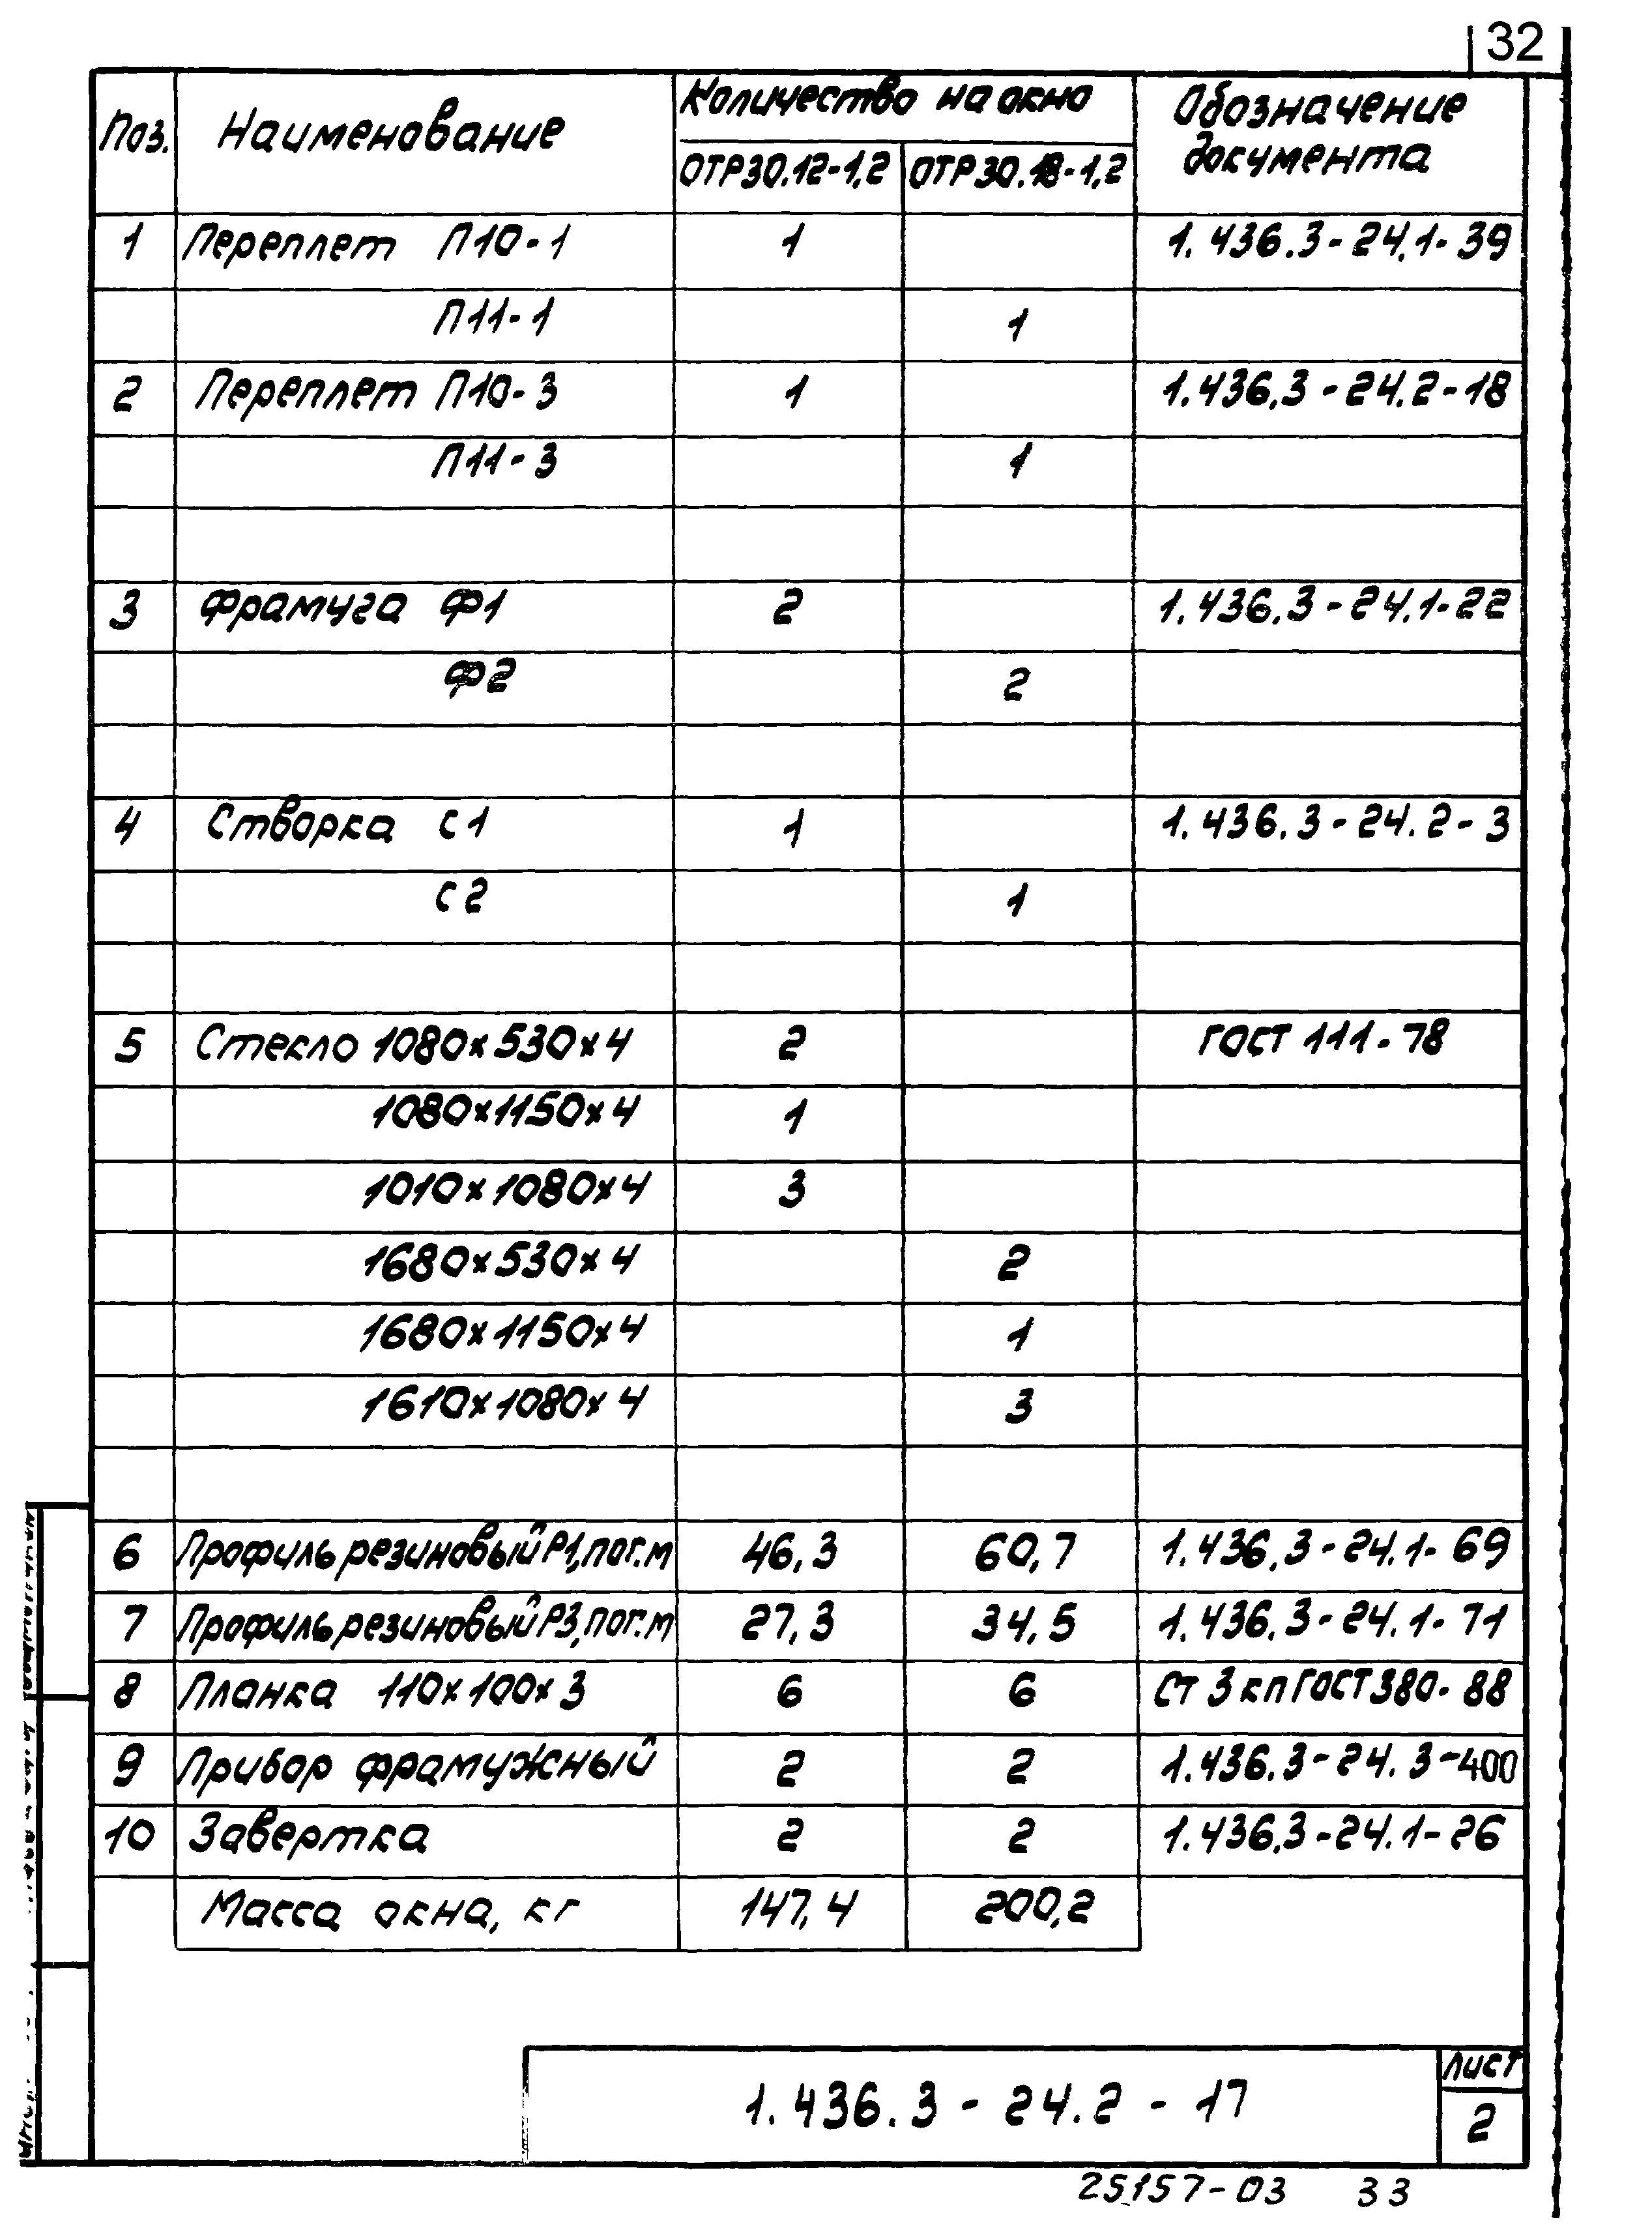 32
Поз. Наименование Количество на окно Обозначение документа
ОТР30.12-1,2 ОТР30.18-1,2
1 Переплет П10-1 1 1.436.3-24.1-39
П11-1 1
2 Переплет П10-3 1 1.436.3-24.2-18
П11-3 1
3 Фрамуга Ф1 2 1.436.3-24.1-22
Ф2 2
4 Створка С1 1 1.436.3-24.2-3
С2 1
5 Стекло 1080х530х4 2 ГОСТ 111-78
1080х1150х4 1
1010х1080х4 3
1680х530х4 2
1680х1150х4 1
1610х1080х4 3
6 Профиль резиновый Р1, пог.м 46,3 60,7 1.436.3-24.1-69
7 Профиль резиновый Р3, пог.м 27,3 34,5 1.436.3-24.1-71
8 Планка 110х100х3 6 6 Ст 3 кп ГОСТ 380-88
9 Прибор фрамужный 2 2 1.436.3-24.3-400
10 Завертка 2 2 1.436.3-24.1-26
Масса окна, кг 147,4 200,2
1.436.3-24.2-17
Лист
2
25157-03 33